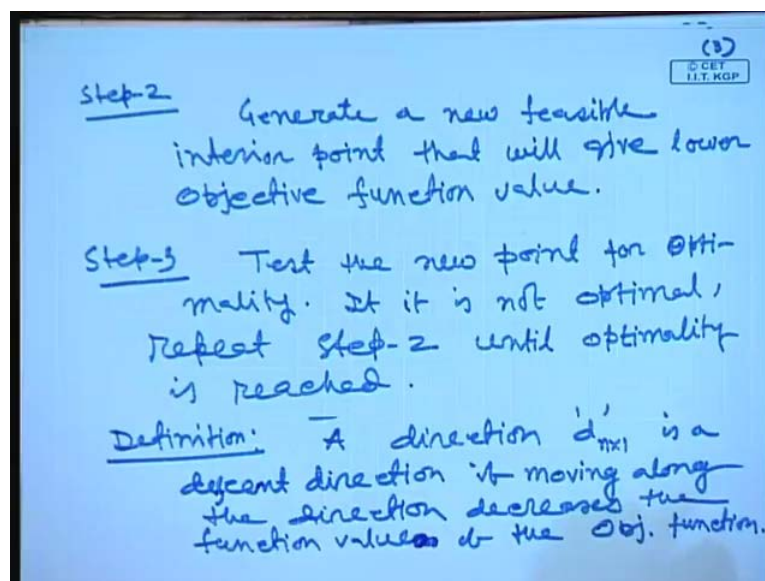 (3)
© CET
I.I.T. KGP
Step-2 Generate a new feasible
interior point that will give lower
objective function value.
Step-3 Test the new point for Opti-
mality. If it is not optimal,
Repeat Step-2 until optimality
is reached.
Definition: A direction 'd'nx1 is a
descent direction if moving along
the direction decreases the
function value of the Obj. function.